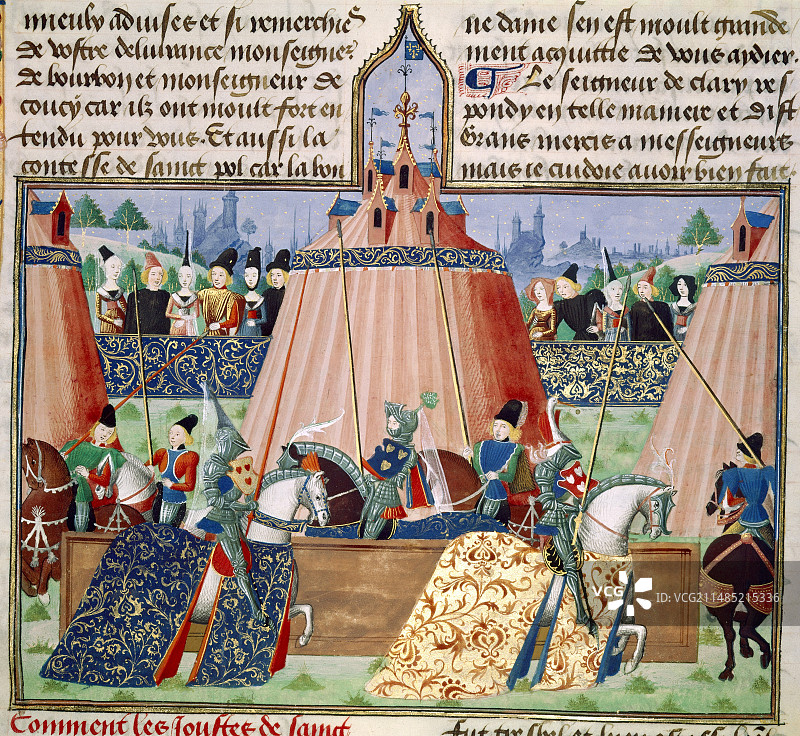 mieulx aduises et si remerchies
de vostre deliurance monseigneur
de bourbon et monseigneur de
coucy car ilz ont moult fort en
tendu pour vous. Et aussi la
contesse de sainct pol car la bon
ne dame sen est moult grande
ment acquittie de vous aidier.
Le seigneur de clary res
pondy en telle maniere et dist
Grans mercis a messeigneurs
mais ie cuidoie auoir bien fait.
Comment les Joustes de sainct
VCG
VCG211485215336